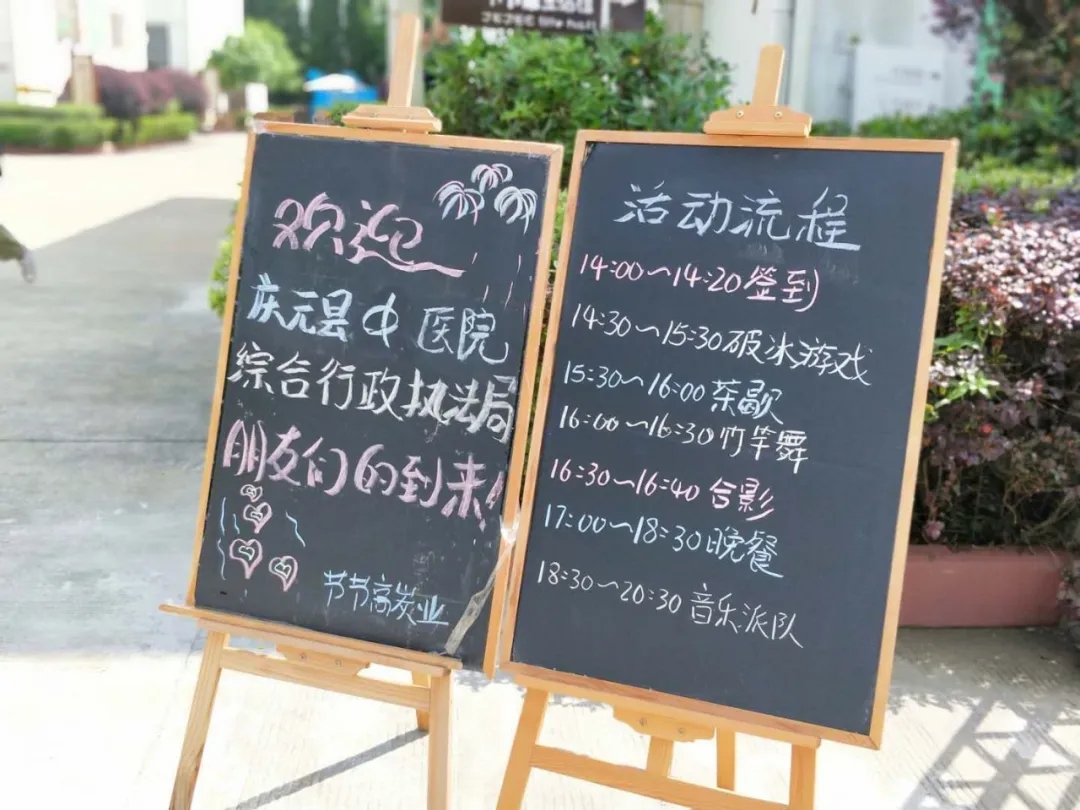 欢迎
庆元县中医院
综合行政执法局
朋友们的到来!
节节高炭业
活动流程
14:00~14:20签到
14:30~15:30破冰游戏
15:30~16:00茶歇
16:00~16:30竹竿舞
16:30~16:40合影
17:00~18:30晚餐
18:30~20:30音乐派队